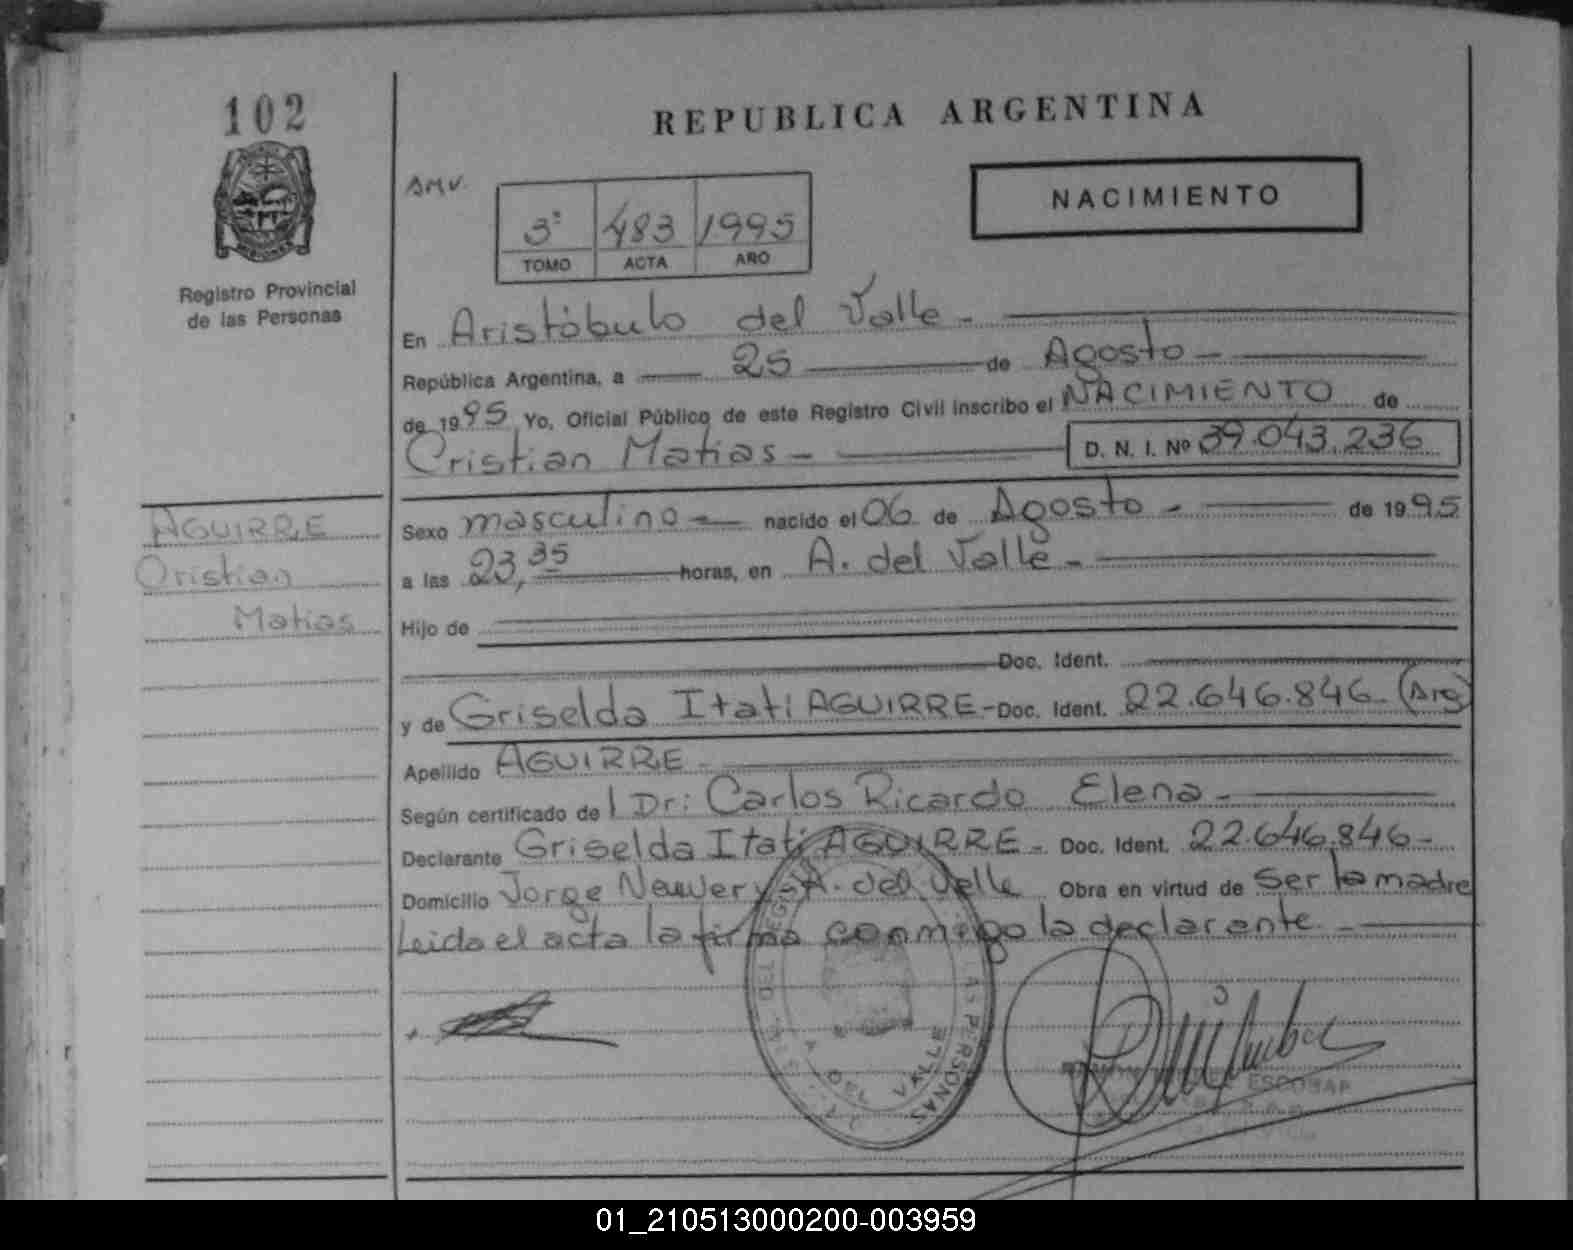 102
REPUBLICA ARGENTINA
AMV.
NACIMIENTO
3º 483 1995
TOMO ACTA AÑO
Registro Provincial
de las Personas
En Aristóbulo del Valle -
República Argentina, a 25 de Agosto -
de 1995 Yo, Oficial Público de este Registro Civil inscribo el NACIMIENTO de
Cristian Matias - D. N. I. Nº 39.043.236
AGUIRRE
Cristian
Matias
Sexo masculino - nacido el 06 de Agosto - de 1995
a las 23,35 horas, en A. del Valle -
Hijo de
Doc. Ident.
y de Griselda Itati AGUIRRE - Doc. Ident. 22.646.846 - (Arg)
Apellido AGUIRRE -
Según certificado de l Dr: Carlos Ricardo Elena -
Declarante Griselda Itati AGUIRRE - Doc. Ident. 22.646.846 -
Domicilio Jorge A. del Valle Obra en virtud de Ser la madre
Leida el acta la firma conmigo la declarante. -
DEL VALLE
PERSONAS
ESCOBAR
01_210513000200-003959